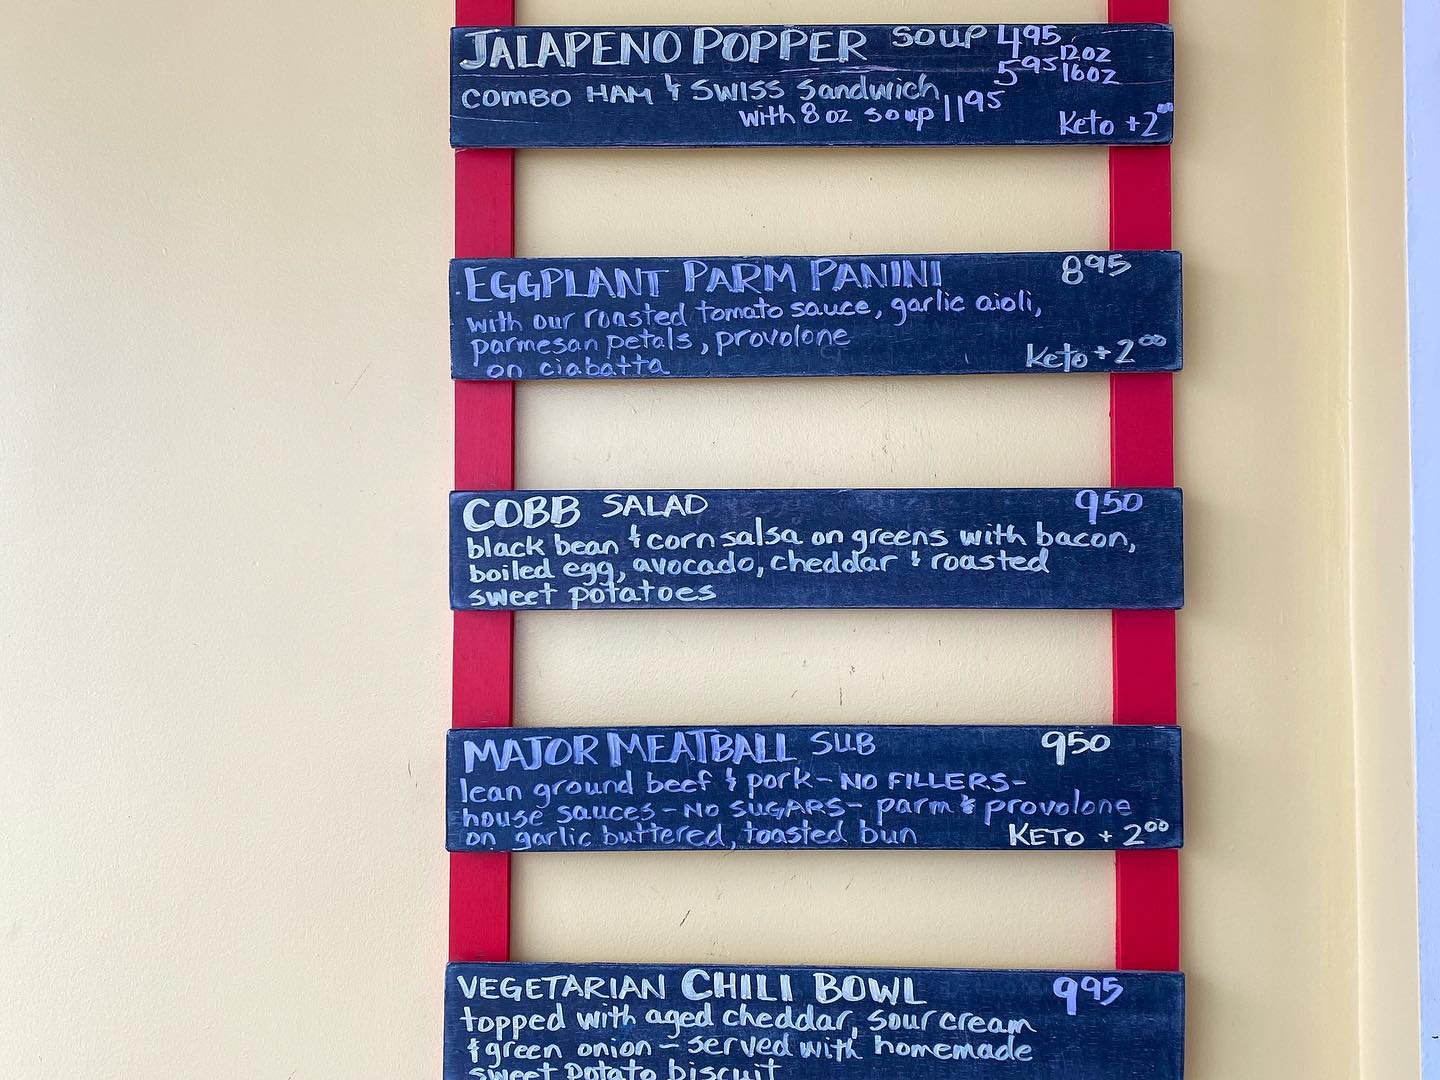 JALAPENO POPPER SOUP 4.95 12oz
5.95 16oz
COMBO HAM & SWISS Sandwich
with 8 oz soup 11.95
Keto +2.00
EGGPLANT PARM PANINI 8.95
with our roasted tomato sauce, garlic aioli,
parmesan petals, provolone
on ciabatta
Keto +2.00
COBB SALAD 9.50
black bean & corn salsa on greens with bacon,
boiled egg, avocado, cheddar & roasted
sweet potatoes
MAJOR MEATBALL SUB 9.50
lean ground beef & pork - NO FILLERS -
house sauces - NO SUGARS - parm & provolone
on garlic buttered, toasted bun
KETO + 2.00
VEGETARIAN CHILI BOWL 9.95
topped with aged cheddar, sour cream
& green onion - served with homemade
sweet potato biscuit